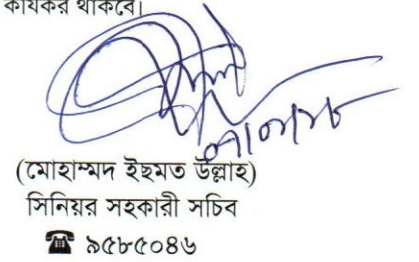 কার্যকর থাকবে।
(মোহাম্মদ ইছমত উল্লাহ)
সিনিয়র সহকারী সচিব
☎ ৯৫৮৫০৪৬